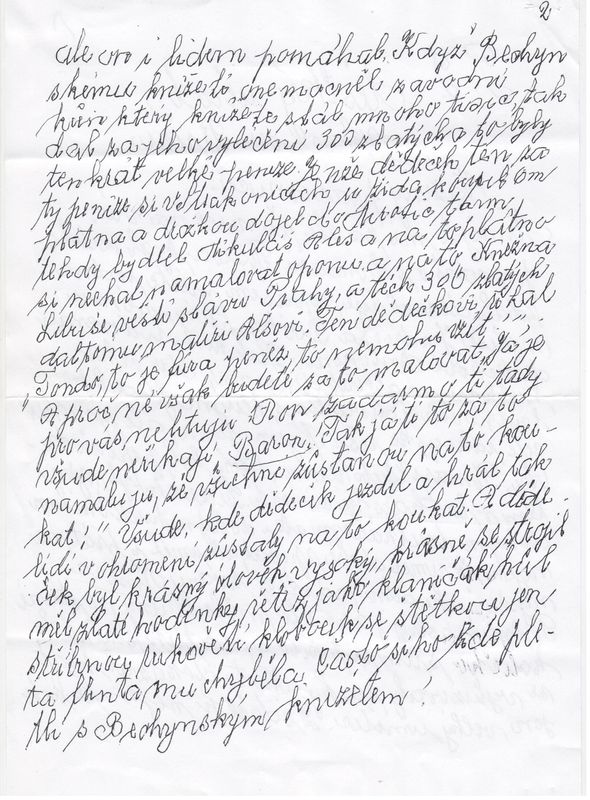 2
ale on i lidem pomáhal. Když Bechyn
skému knížeti onemocněl závodní
kůň který knížete stál mnoho tisíc, tak
dal za jeho vyléčení 300 zlatých a to byly
tenkrát velké peníze. Jenže dědeček ten za
ty peníze si ve Strakonicích u žida koupil
plátna a drožkou dojel do
tehdy bydlel Mikuláš Aleš a na to plátno
si nechal namalovat oponu. a na to Kněžna
Libuše věstí slávu Prahy, a těch 300 zlatých
dal tomu malíři Alšovi. Ten dědečkovi říkal
"Tondo, to je fůra peněz, to nemohu vzít!"
"A proč ne však budete za to malovat, Já je
pro vás nelituju. On zadarmo ti tady
všude neříkají "Baron". Tak já ti to za to
namaluju, že všichni zůstanou na to kou-
kat!" Všude, kde dědeček jezdil a hrál tak
lidi v ohromení zůstaly na to koukat. A děde-
ček byl krásný člověk vysoký, krásně se strojil
měl zlaté hodinky, řetěz jako klaničák, hůl
stříbrnou rukovětí, klobouk se štětkou jen
ta flinta mu chyběla. Často si ho lidé ple-
tli s Bechynským knížetem!